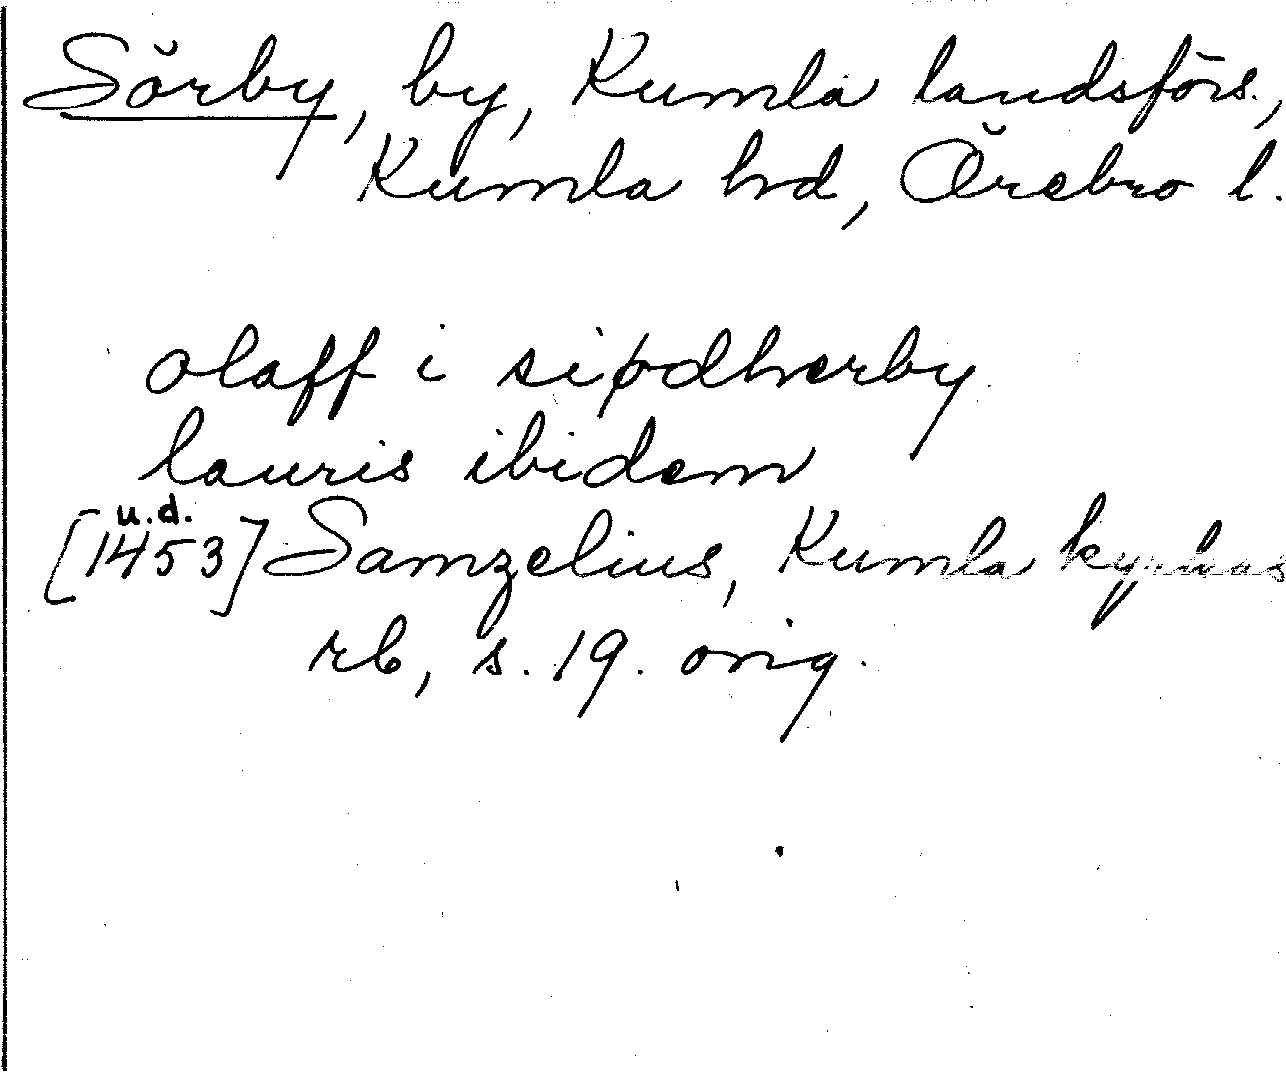 Sörby, by, Kumla landsförs.,
Kumla hd, Örebro l.
olaff i siødherby
lauris ibidem
u.d.
[1453] Samzelius, Kumla kyrkas
rb, s. 19. orig.